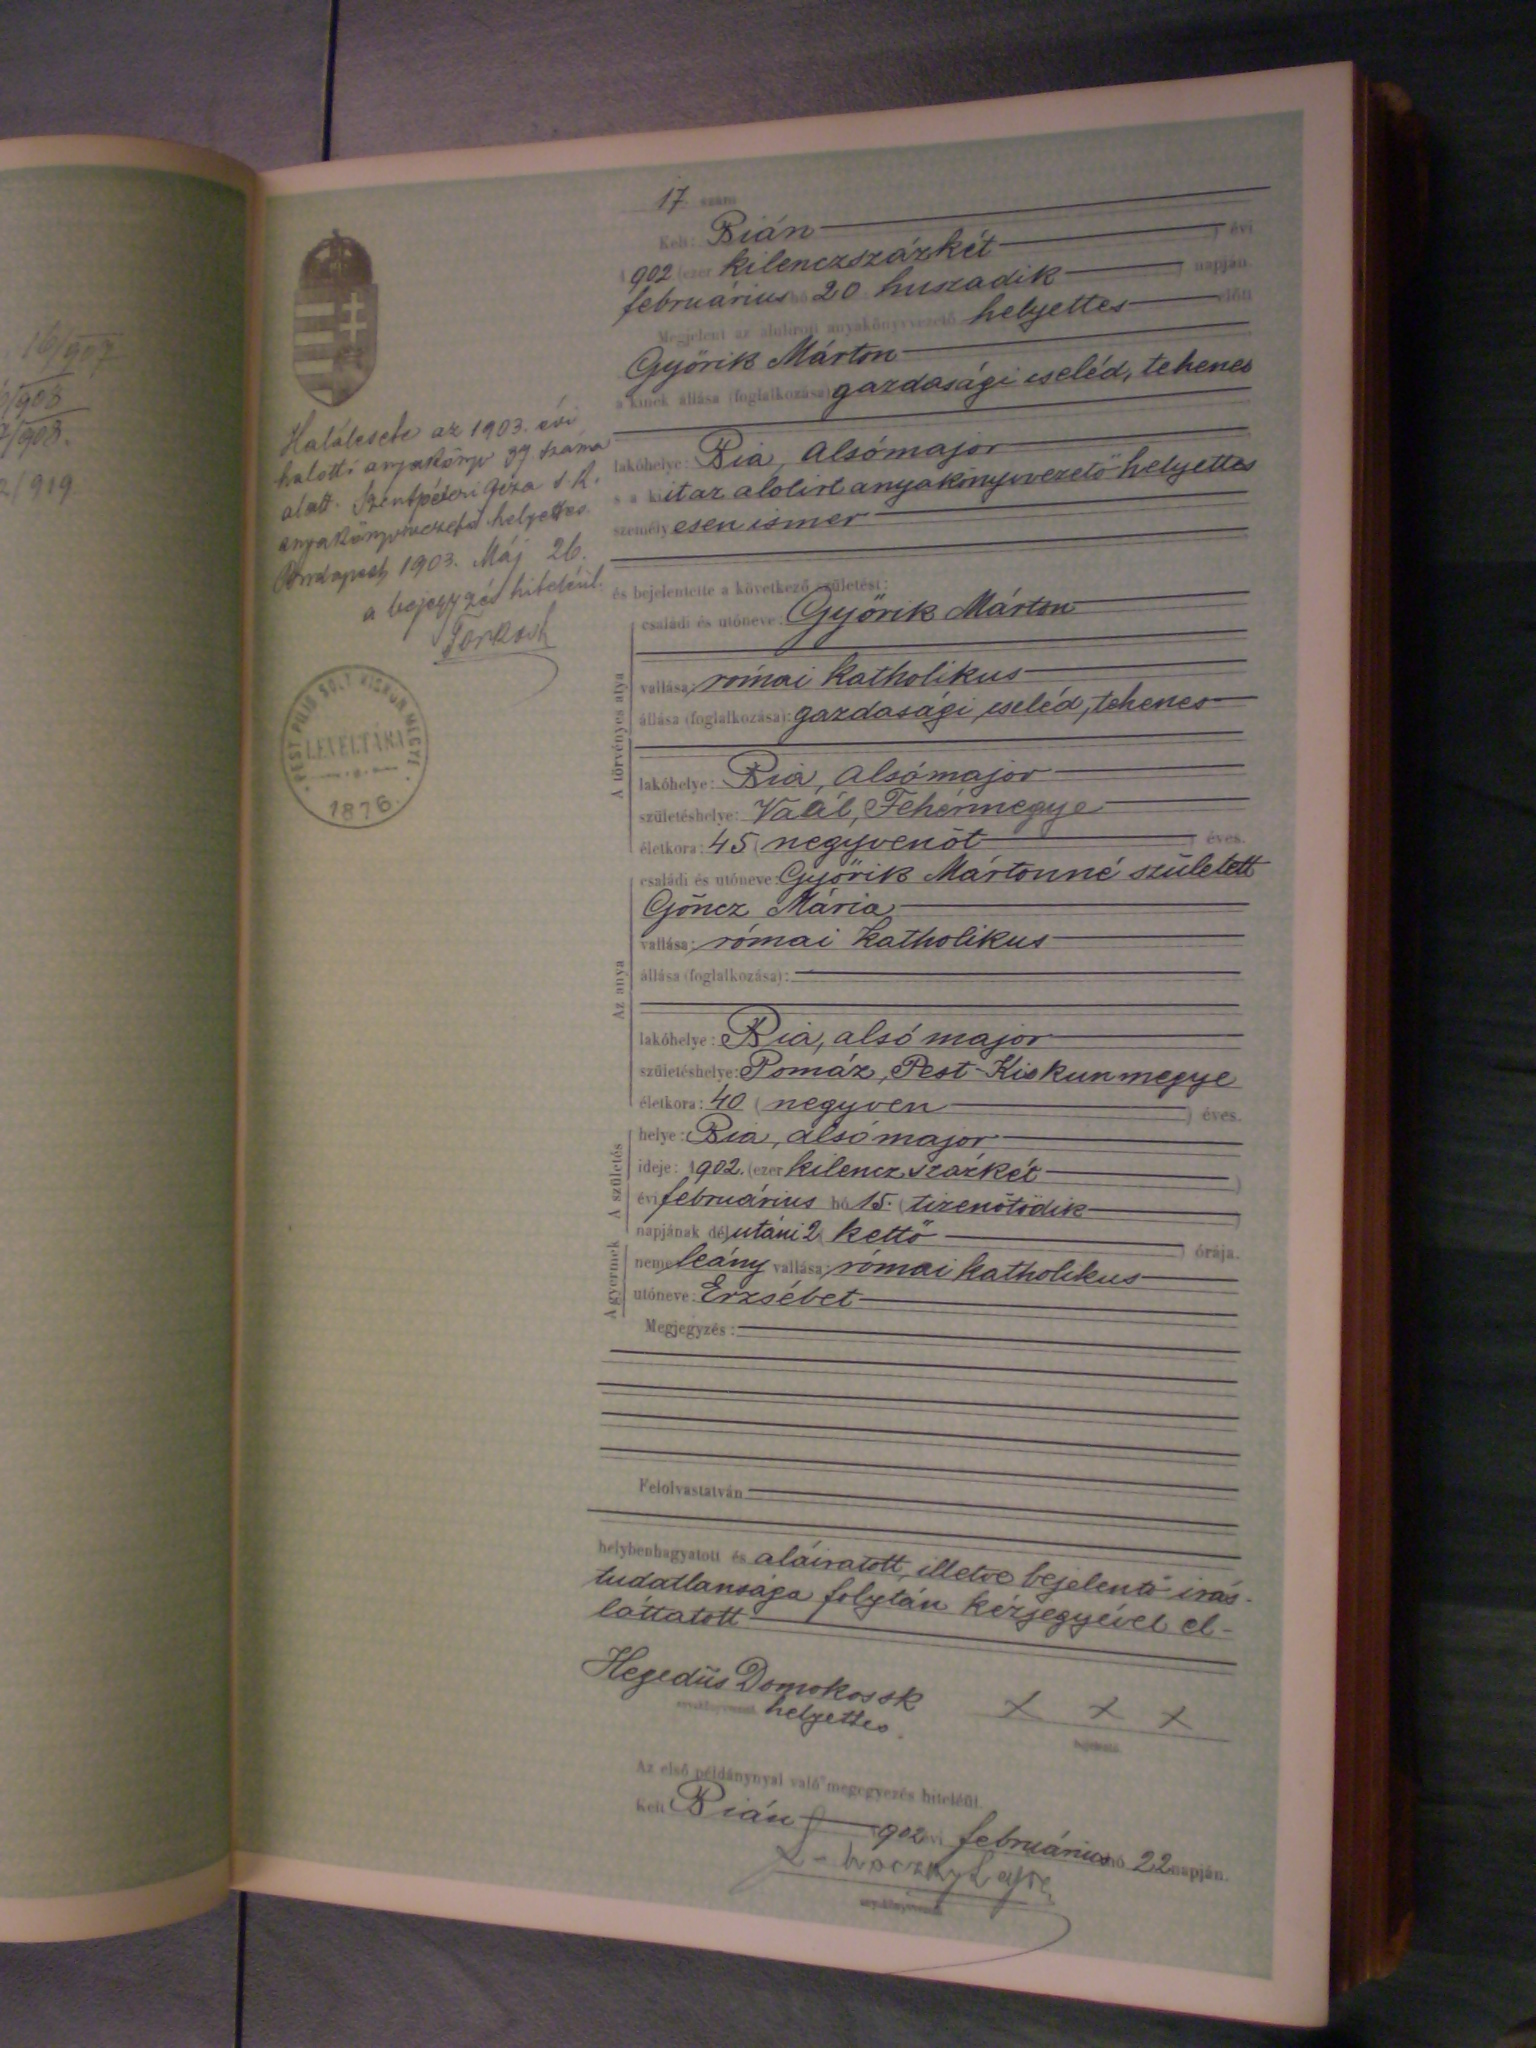 16/907
/908
/908.
2/919
Halálesete az 1903. évi
halotti anyakönyv 39 száma
alatt. Szentpéteri Géza s. k.
anyakönyvvezető helyettes
Budapest, 1903. Máj 26.
a bejegyzés hiteléül.
PEST PILIS SOLT KISKUN MEGYE
LEVÉLTÁRA
1876.
17 szám
Kelt: Bián
1902 (ezer kilenczszázkét ) évi
februárius hó 20 huszadik ) napján.
Megjelent az alulirott anyakönyvvezető helyettes előtt
Győrik Márton
a kinek állása (foglalkozása) gazdasági cseléd, tehenes
lakóhelye: Bia, Alsómajor
s a kit az alolirt anyakönyvvezető helyettes
személyesen ismer
és bejelentette a következő születést:
A törvényes atya
családi és utóneve: Győrik Márton
vallása: római katholikus
állása (foglalkozása): gazdasági cseléd, tehenes
lakóhelye: Bia, Alsómajor
születéshelye: Vaál, Fehérmegye
életkora: 45 (negyvenöt ) éves.
Az anya
családi és utóneve: Győrik Mártonné született
Göncz Mária
vallása: római katholikus
állása (foglalkozása):
lakóhelye: Bia, alsó major
születéshelye: Pomáz, Pest-Kiskunmegye
életkora: 40 (negyven ) éves.
A születés
helye: Bia, alsómajor
ideje: 1902. (ezer kilencz százkét )
évi februárius hó 15. (tizenötödik )
napjának délutáni 2 kettő ) órája.
A gyermek
neme leány vallása: római katholikus
utóneve: Erzsébet
Megjegyzés:
Felolvastatván
helybenhagyatott és aláiratott, illetve bejelentő irás-
tudatlansága folytán kézjegyével el-
láttatott
Hegedüs Domokos sk x x x
anyakönyvvezető helyettes. bejelentő
Az első példánynyal való megegyezés hiteléül.
Kelt Bián 1902 évi februárius hó 22 napján.
anyakönyvvezető